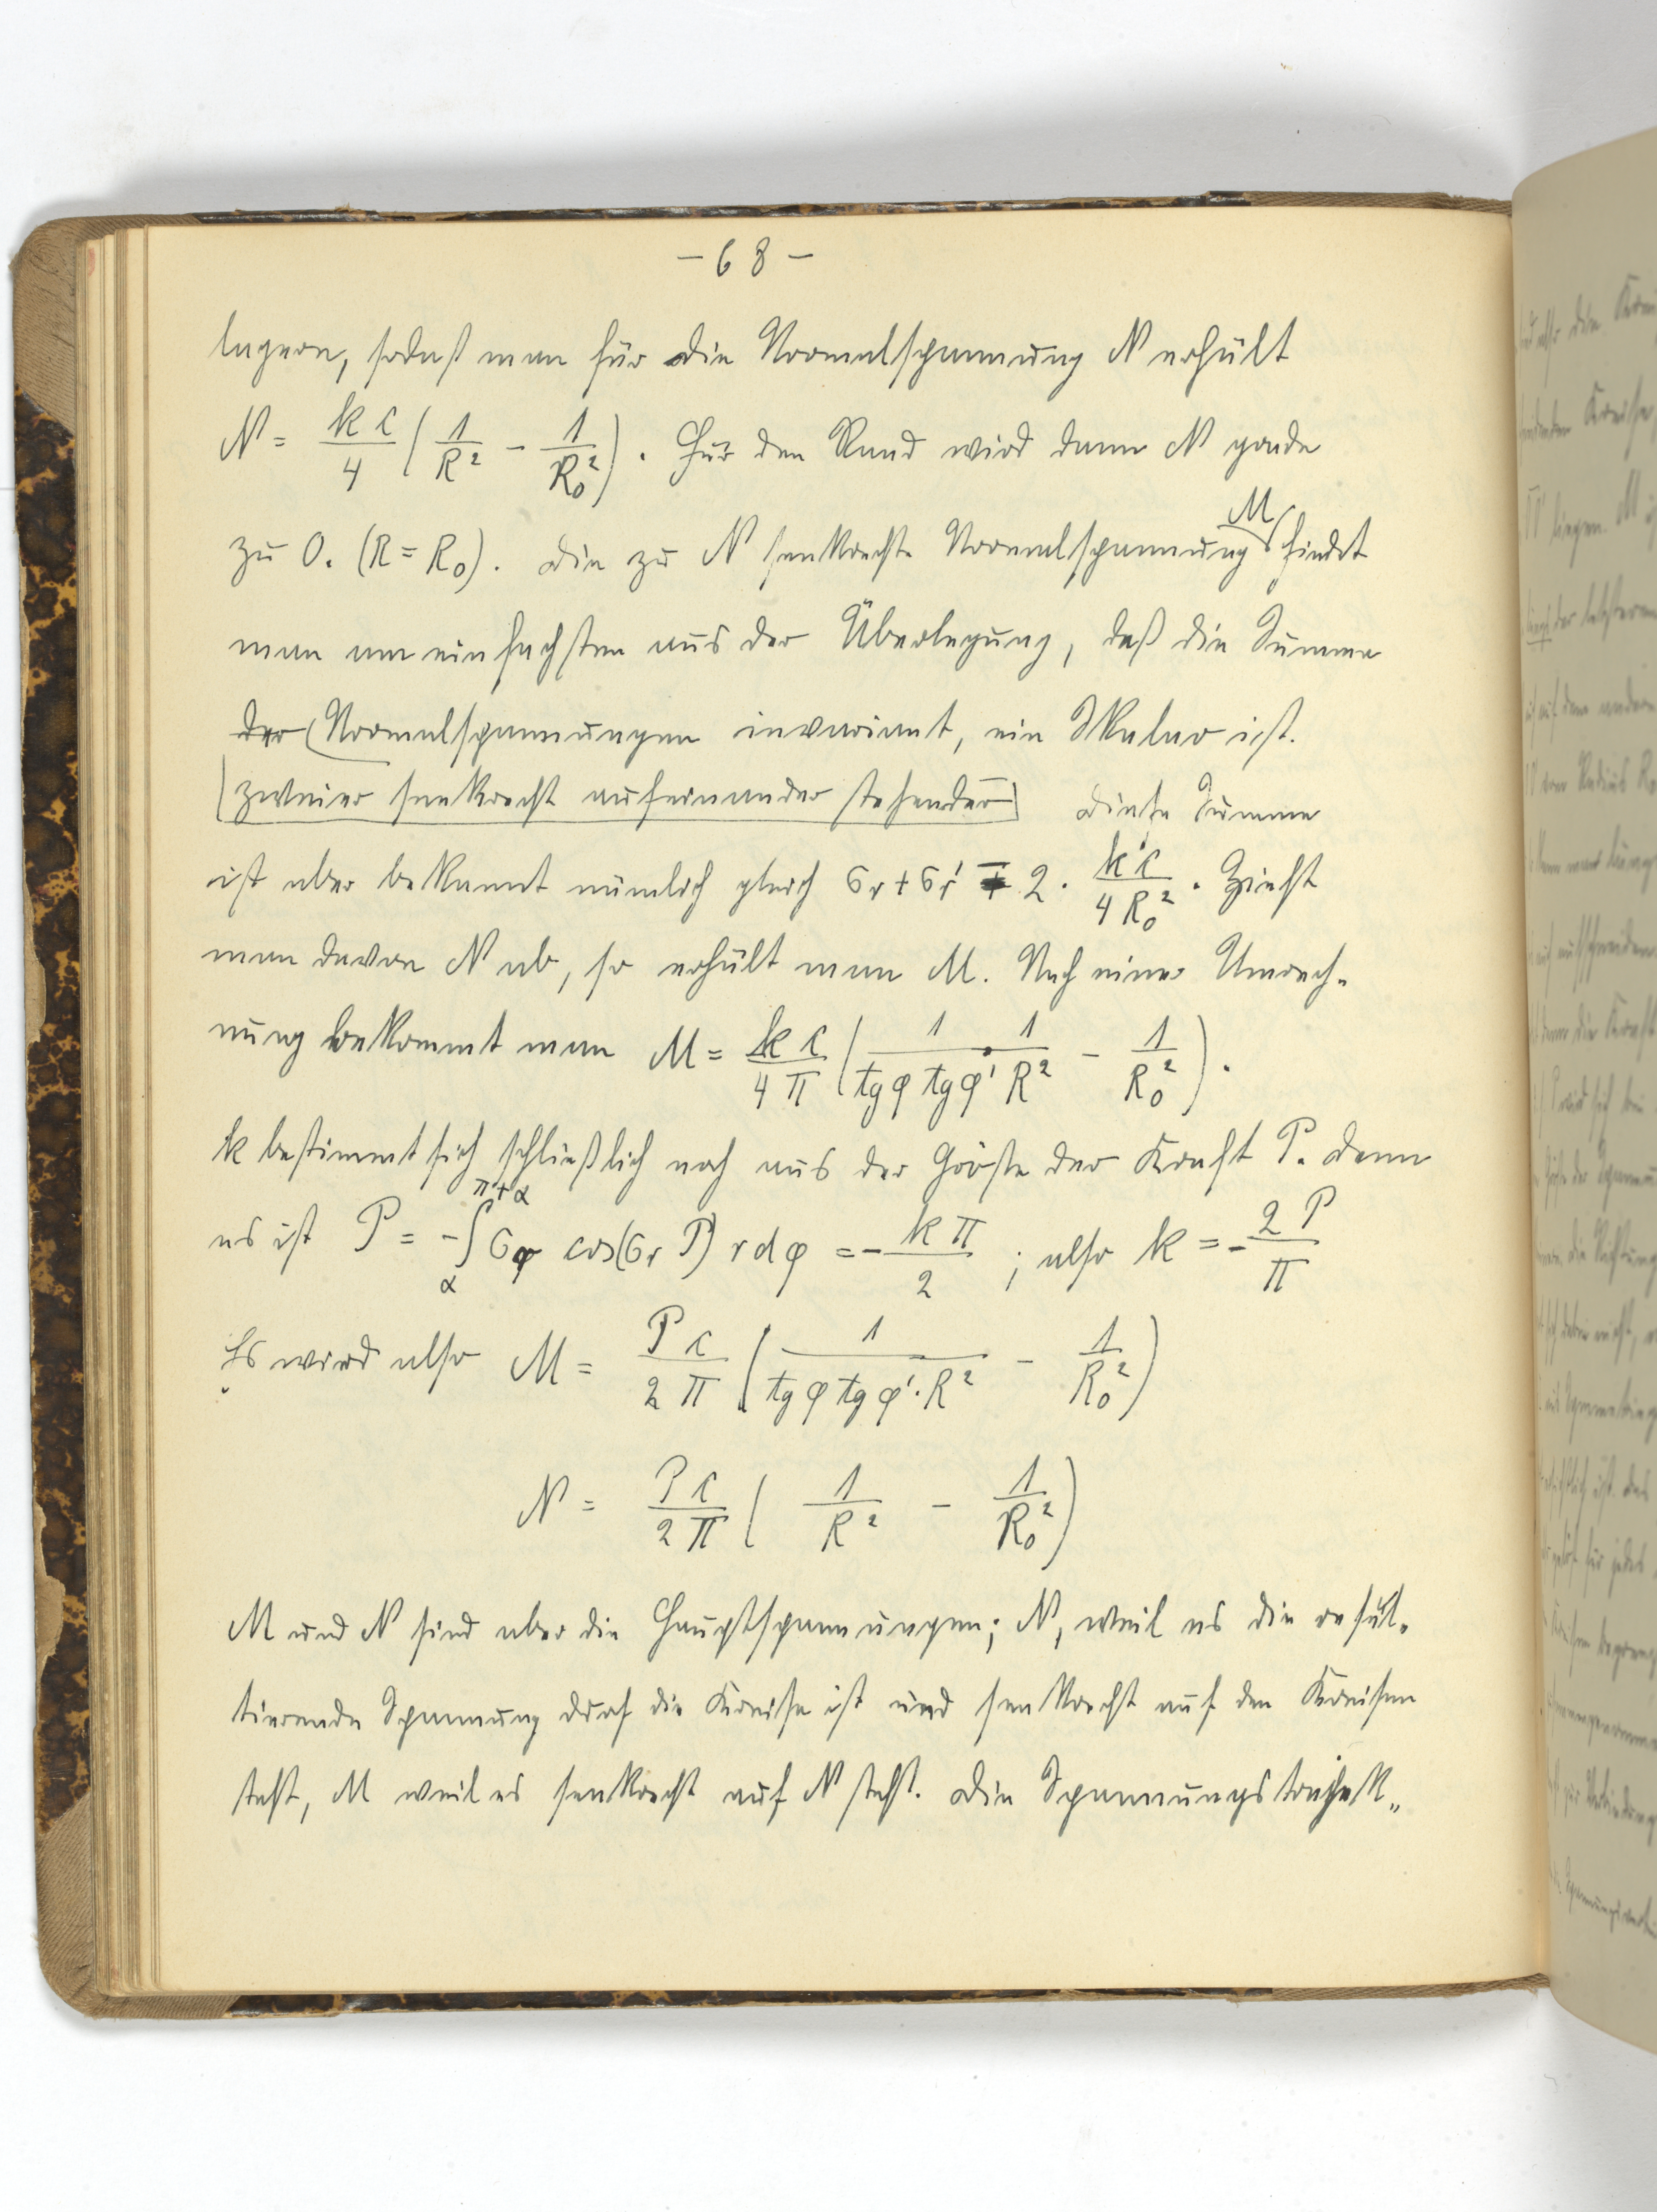 - 68 -
lagern, sodaß man für die Normalspannung N erhält
N = \frac{k c}{4} ( \frac{1}{R^2} - \frac{1}{R_0^2} ) . Für den Rand wird dann N grade
zu 0. (R = R_0). Die zu N senkrechte Normalspannung M findet
man am einfachsten aus der Überlegung, daß die Summe
der Normalspannungen invariant, ein Skalar ist.
zweier senkrecht aufeinander stehender Diese Summe
ist aber bekannt nämlich gleich σr + σr' ∓ 2 · \frac{k c}{4 R_0^2} . Zieht
man davon N ab, so erhält man M. Nach einer Umrech-
nung bekommt man M = \frac{k c}{4 π} ( \frac{1}{tg φ tg φ'} \cdot \frac{1}{R^2} - \frac{1}{R_0^2} ) .
k bestimmt sich schließlich noch aus der Größe der Kraft P. Denn
es ist P = - \int_{α}^{π+α} σφ cos(σr P) r dφ = - \frac{k π}{2} ; also k = - \frac{2 P}{π}
Es wird also M = \frac{P c}{2 π} ( \frac{1}{tg φ tg φ' · R^2} - \frac{1}{R_0^2} )
N = \frac{P c}{2 π} ( \frac{1}{R^2} - \frac{1}{R_0^2} )
M und N sind aber die Hauptspannungen; N, weil es die resul-
tierende Spannung auf die Kreise ist und senkrecht auf den Kreisen
steht, M weil es senkrecht auf N steht. Die Spannungstrajek-